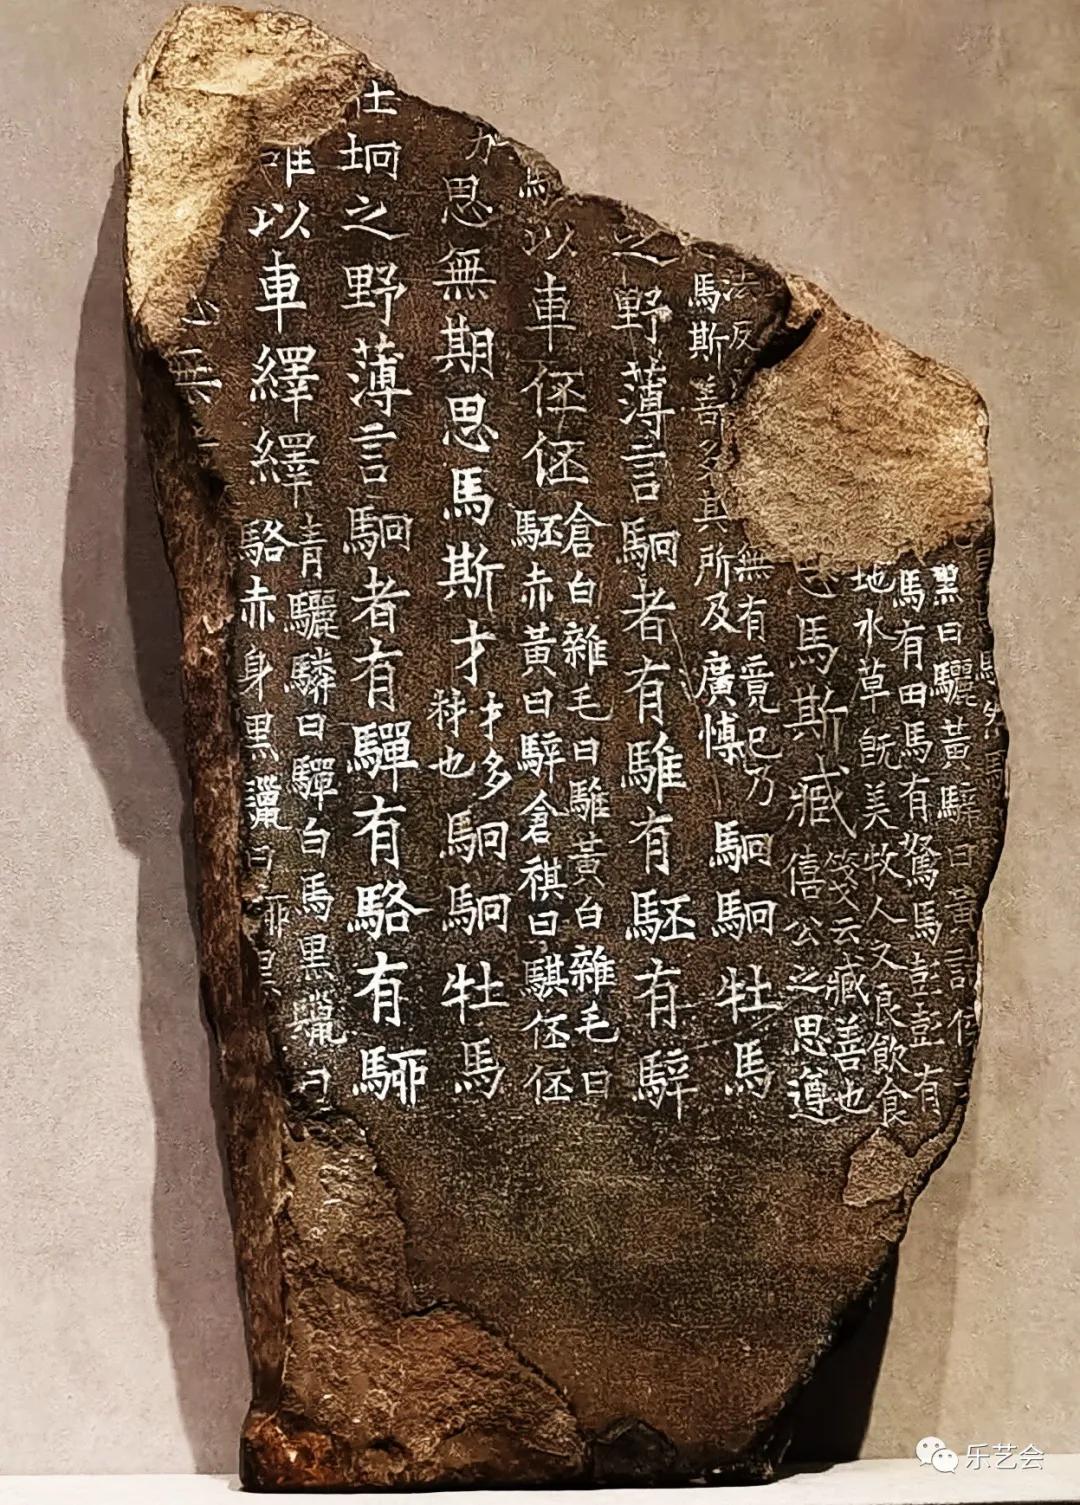 黑曰驪黃騂曰黃諸侯
馬有田馬有駑馬彭彭有
地水草旣美牧人又良飮食
思馬斯臧
箋云臧善也
僖公之思遵
法反
無有竟已乃
馬斯善多其所及廣愽
駉駉牡馬
之野薄言駉者有騅有駓有騂
馬以車伾伾
倉白雜毛曰騅黃白雜毛曰
駓赤黃曰騂倉祺曰騏伾伾
力思無期思馬斯才
才多
材也
駉駉牡馬
在坰之野薄言駉者有驒有駱有駵
唯以車繹繹
青驪驎曰驒白馬黑鬣曰
駱赤身黑鬣曰駵黑
無
乐艺会